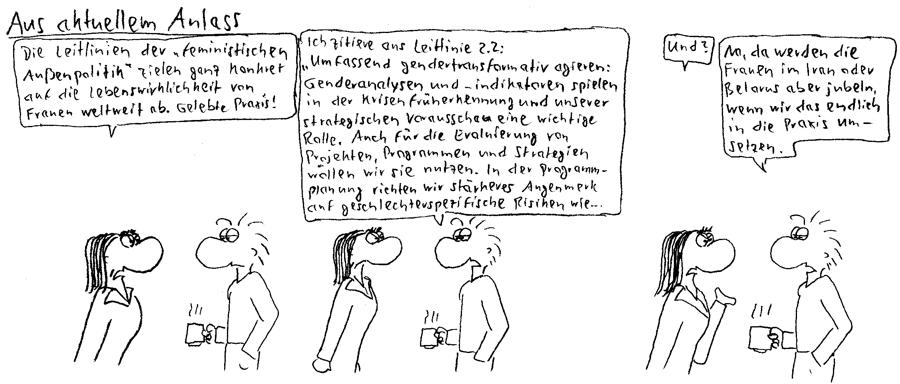 Aus aktuellem Anlass
Die Leitlinien der „feministischen
Außenpolitik“ zielen ganz konkret
auf die Lebenswirklichkeit von
Frauen weltweit ab. Gelebte Praxis!
Ich zitiere aus Leitlinie 2.2:
„Umfassend gendertransformativ agieren:
Genderanalysen und -indikatoren spielen
in der Krisenfrüherkennung und unserer
strategischen Vorausschau eine wichtige
Rolle. Auch für die Evaluierung von
Projekten, Programmen und Strategien
wollen wir sie nutzen. In der Programm-
planung richten wir stärkeres Augenmerk
auf geschlechterspezifische Risiken wie...
Und?
Na, da werden die
Frauen im Iran oder
Belarus aber jubeln,
wenn wir das endlich
in die Praxis um-
setzen.